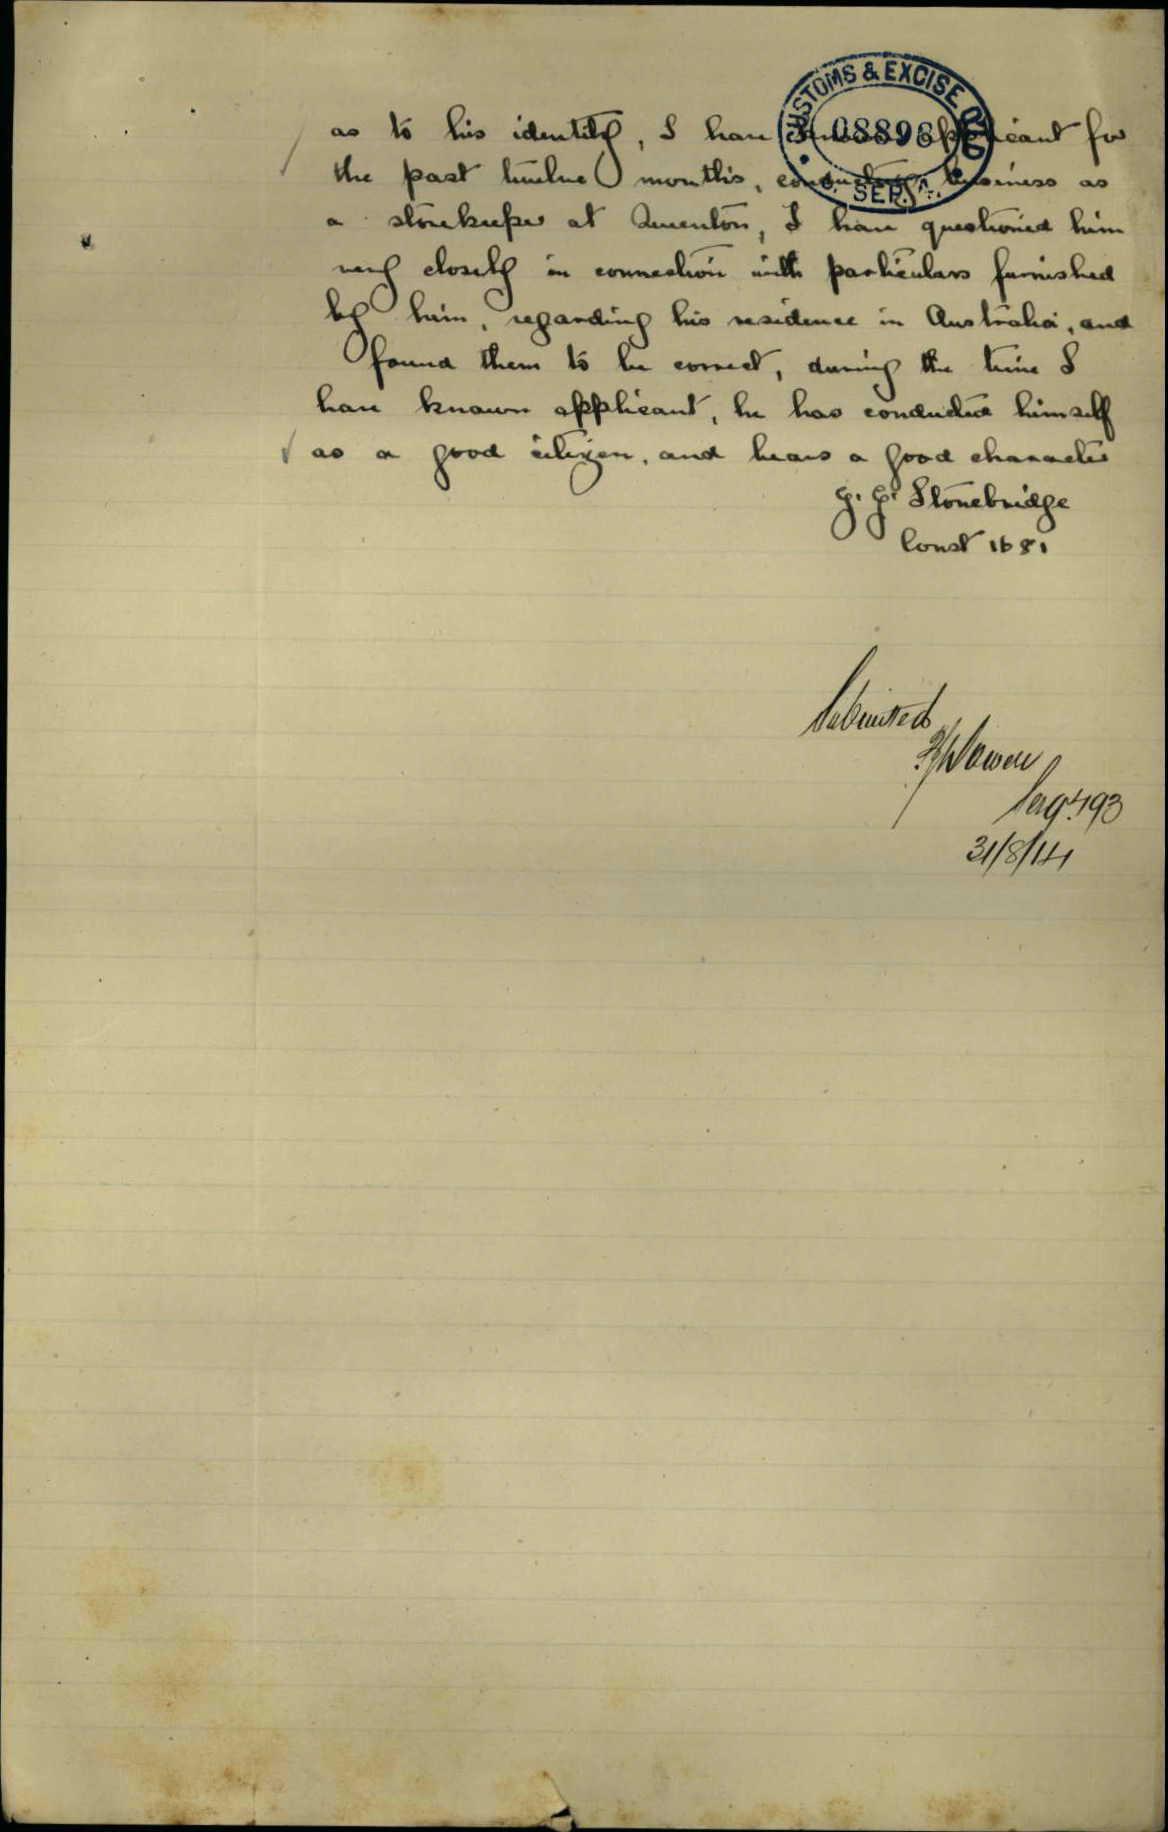 CUSTOMS & EXCISE
08898
SEP.
as to his identity, I have known applicant for
the past twelve months, conducting business as
a storekeeper at Quenton, I have questioned him
very closely in connection with particulars furnished
by him, regarding his residence in Australia, and
found them to be correct, during the time I
have known applicant, he has conducted himself
as a good citizen, and bears a good character
G. G. Stonebridge
Const 1681
Submitted
Sergt 493
31/8/14